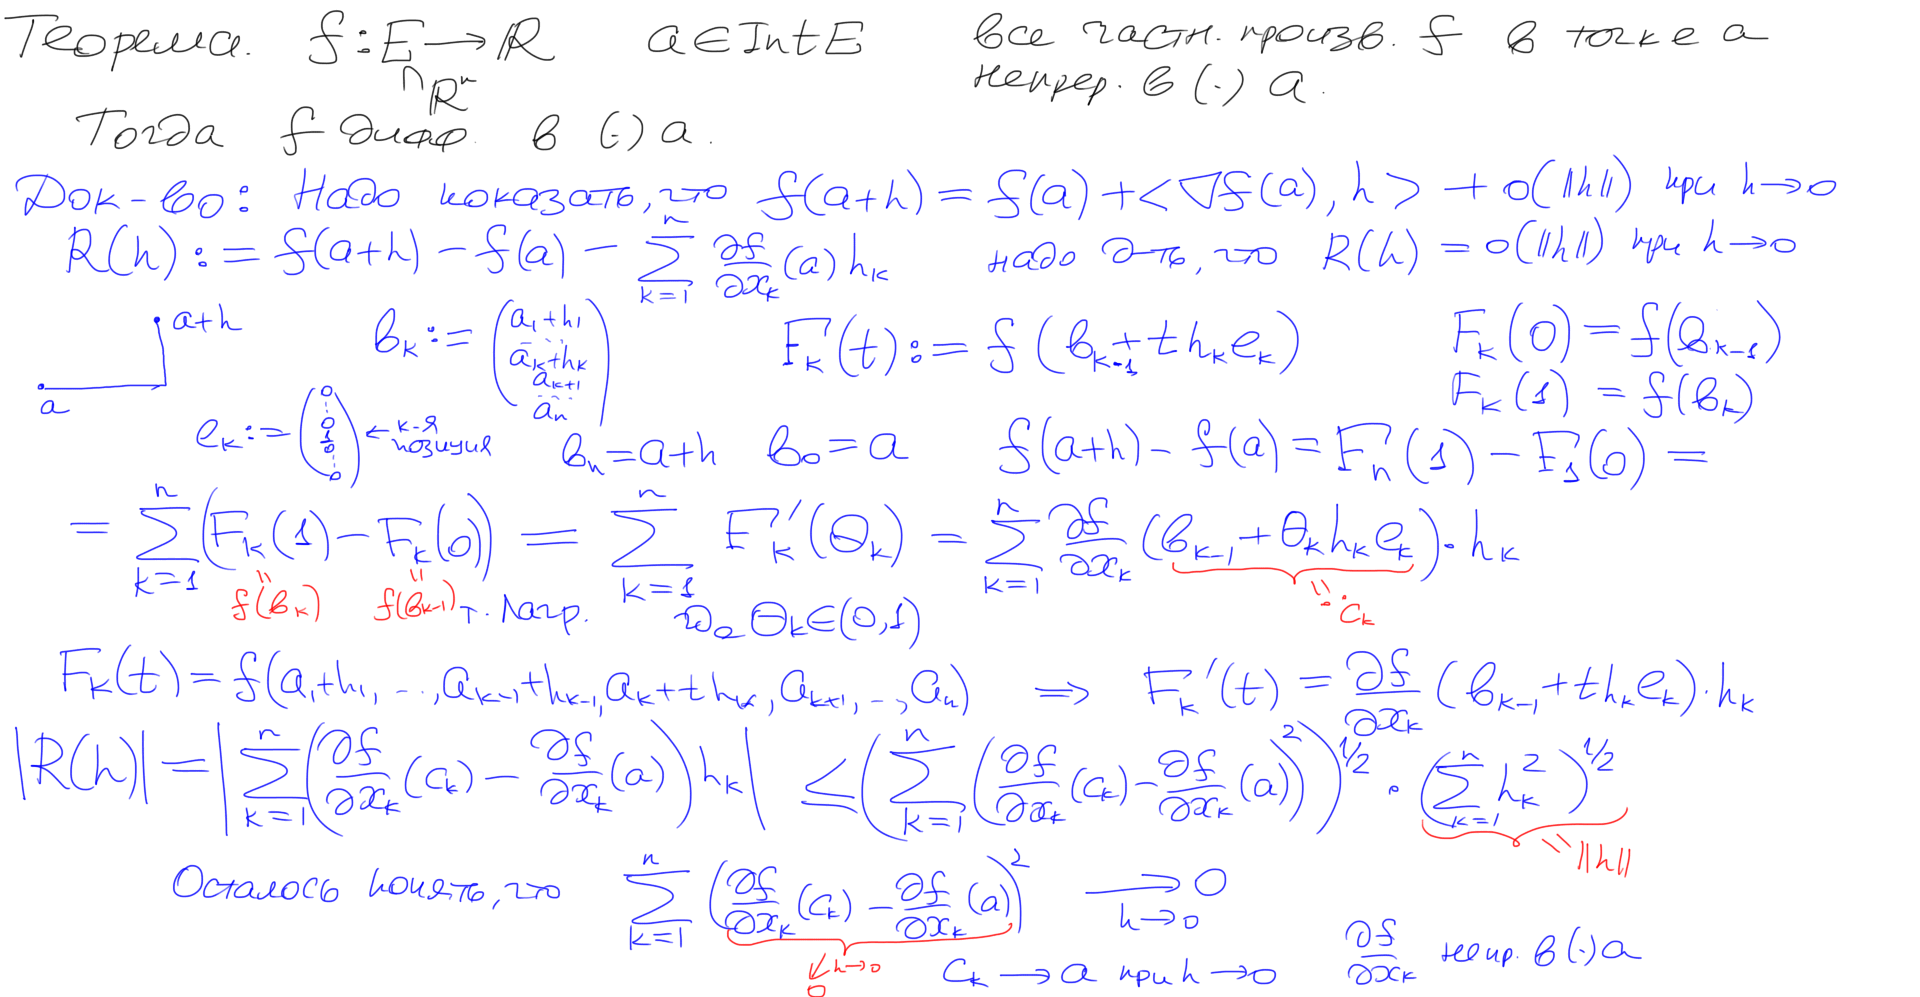 Теорема. f : E → R a ∈ Int E все частн. произв. f в точке a
∩ Rⁿ непрер. в (·) a.
Тогда f дифф. в (·) a.
Док-во: Надо показать, что f(a+h) = f(a) + <∇f(a), h> + o(||h||) при h→0
R(h) := f(a+h) − f(a) − ∑_{k=1}^{n} ∂f/∂x_k (a) h_k надо д-ть, что R(h) = o(||h||) при h→0
a a+h b_k := (a_1+h_1 ... a_k+h_k a_{k+1} ... a_n) F_k(t) := f(b_{k-1} + t h_k e_k) F_k(0) = f(b_{k-1})
F_k(1) = f(b_k)
e_k := (0 ... 0 1 0 ... 0) ← k-я позиция b_n = a+h b_0 = a f(a+h) − f(a) = F_n(1) − F_1(0) =
= ∑_{k=1}^{n} (F_k(1) − F_k(0)) = ∑_{k=1}^{n} F_k'(θ_k) = ∑_{k=1}^{n} ∂f/∂x_k (b_{k-1} + θ_k h_k e_k) · h_k
f(b_k) f(b_{k-1}) т. Лагр. θ_k ∈ (0,1) =: c_k
F_k(t) = f(a_1+h_1, ..., a_{k-1}+h_{k-1}, a_k+th_k, a_{k+1}, ..., a_n) ⇒ F_k'(t) = ∂f/∂x_k (b_{k-1} + t h_k e_k) · h_k
|R(h)| = |∑_{k=1}^{n} (∂f/∂x_k (c_k) − ∂f/∂x_k (a)) h_k| ≤ (∑_{k=1}^{n} (∂f/∂x_k (c_k) − ∂f/∂x_k (a))²)^{1/2} · (∑_{k=1}^{n} h_k²)^{1/2}
= ||h||
Осталось понять, что ∑_{k=1}^{n} (∂f/∂x_k (c_k) − ∂f/∂x_k (a))² → 0
h→0
↙ h→0 0 c_k → a при h→0 ∂f/∂x_k непр. в (·) a